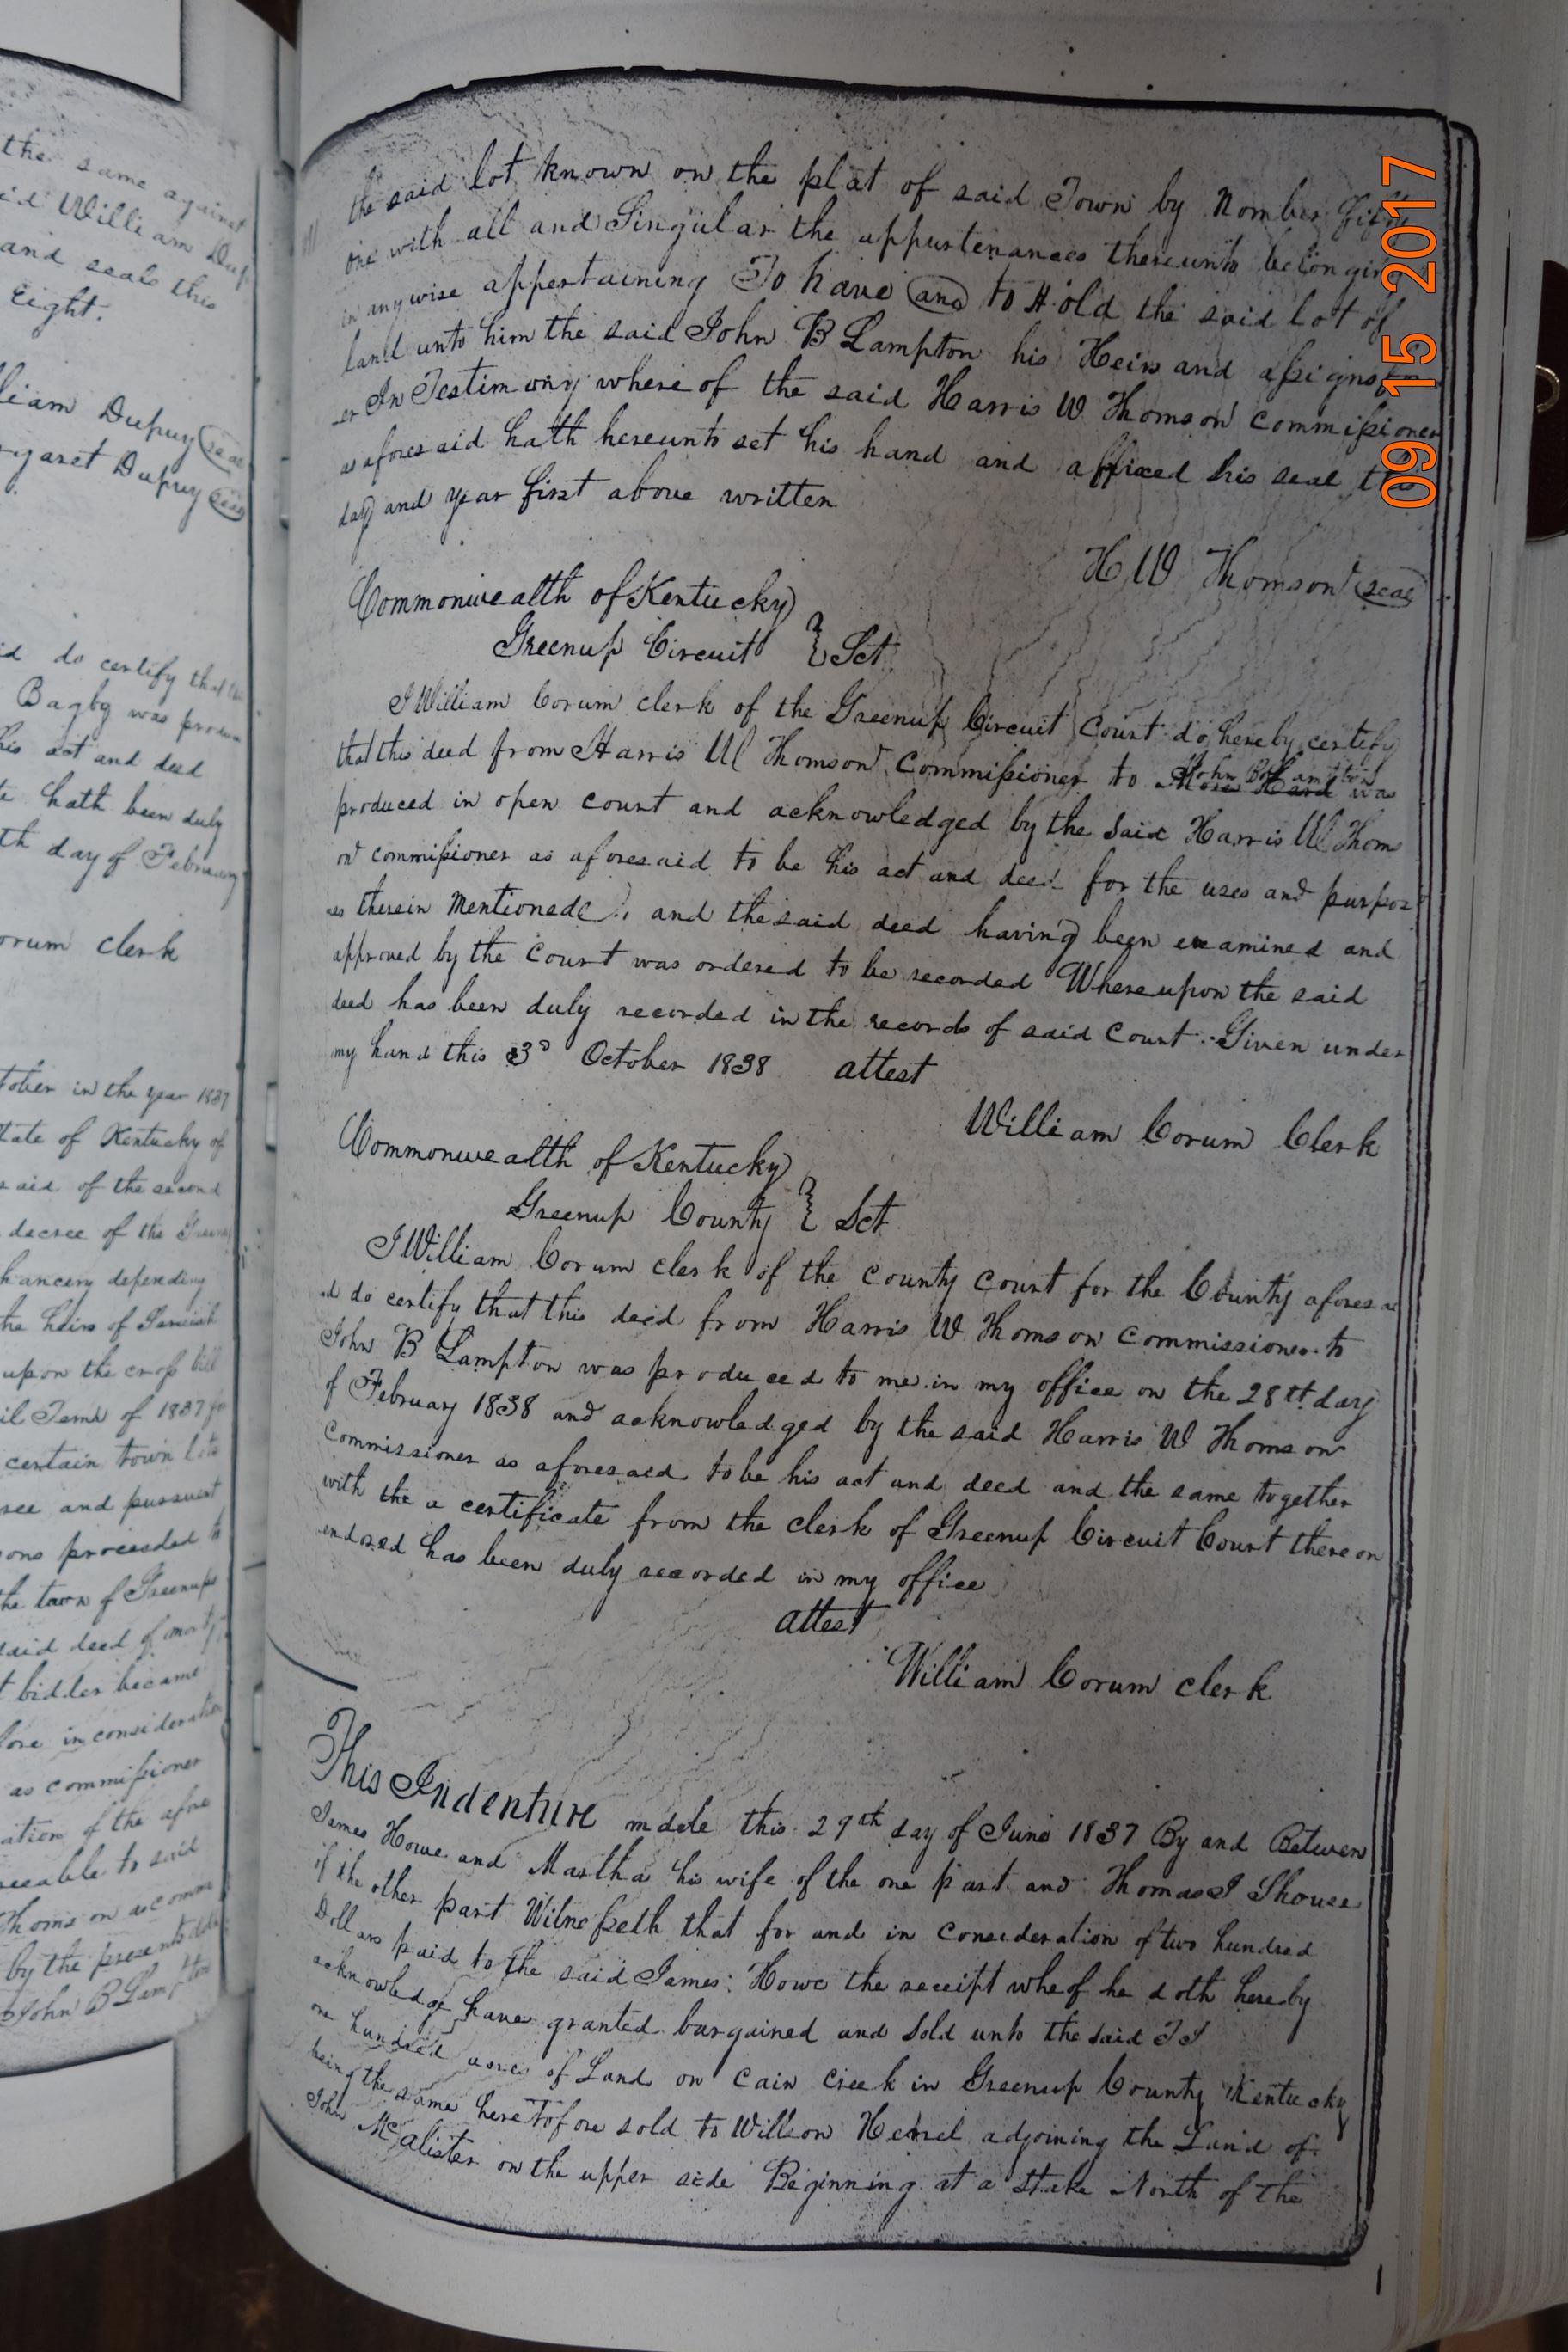 the same against
id William Dup
and seals this
Eight.
lliam Dupuy seal
rgaret Dupuy seal
id do certify that the
Bagby was produ
his act and deed
te hath been duly
th day of February
orum clerk
tober in the year 1837
tate of Kentucky of
said of the second
decree of the Green
hancery depending
the heirs of
upon the cross bill
il Term of 1837 for
certain town lots
ree and pursuant
ons proceeded to
the town of Greenup
said deed of mort
t bidder became
fore in consideration
as commissioner
ation of the afore
receable to said
Thomson as comm
by the presents
John B Lampton
the said lot known on the plat of said Town by Nomber Fifty
one with all and Singular the appurtenances thereunto belongin
in anywise appertaining To have and to Hold the said lot of
land unto him the said John B Lampton his Heirs and assigns
er In Testimony whereof the said Harris W Thomson commissioner
as aforesaid hath hereunto set his hand and affixed his seal the
day and year first above written
H W Thomson seal
Commonwealth of Kentucky
Greenup Circuit } Sct
I William Corum clerk of the Greenup Circuit Court do hereby certify
that this deed from Harris W Thomson Commissioner to John B Lampton was
produced in open court and acknowledged by the said Harris W Thom
on commissioner as aforesaid to be his act and deed for the uses and purpos
es therein Mentioned and the said deed having been examined and
approved by the Court was ordered to be recorded Whereupon the said
deed has been duly recorded in the records of said Court. Given under
my hand this 3d October 1838 attest
William Corum Clerk
Commonwealth of Kentucky
Greenup County } Sct
I William Corum clerk of the County Court for the County aforesa
id do certify that this deed from Harris W Thomson Commissioner to
John B Lampton was produced to me in my office on the 28th day
of February 1838 and acknowledged by the said Harris W Thomson
Commissioner as aforesaid to be his act and deed and the same together
with the a certificate from the clerk of Greenup Circuit Court thereon
endorsed has been duly recorded in my office
attest
William Corum clerk
This Indenture made this 29th day of June 1837 By and Between
James Howe and Martha his wife of the one part and Thomas J Shouse
of the other part Witnesseth that for and in Consideration of two hundred
Dollars paid to the said James Howe the receipt wheof he doth hereby
acknowledge have granted bargained and Sold unto the said T J
one hundred acres of Land on Cain Creek in Greenup County Kentucky
being the same heretofore sold to Willson adjoining the Land of
John McAlister on the upper side Beginning at a Stake North of the
09 15 2017